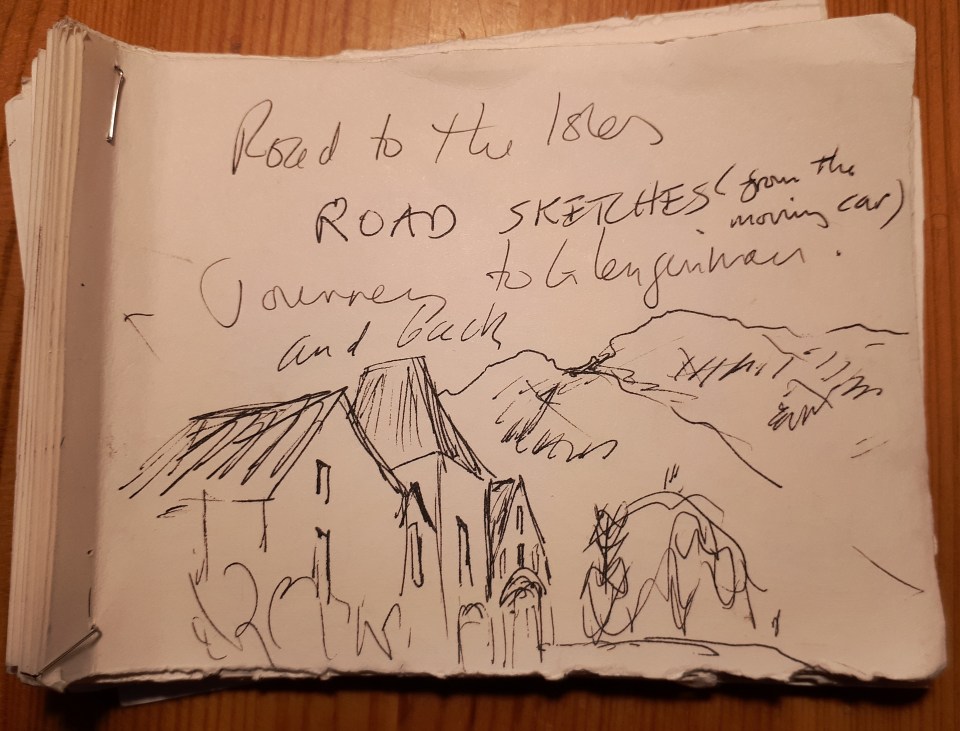 Road to the Isles
ROAD SKETCHES (from the moving car)
Journey to Glenginnan.
and back